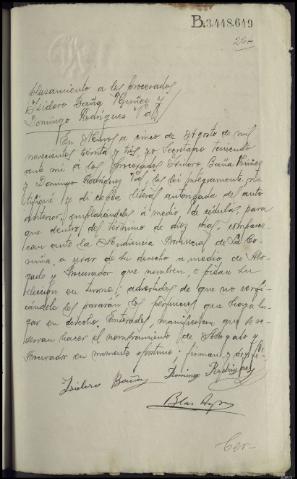 B.3.448.649
Emplazamiento a los procesados
Isidoro Baña Núñez y
Domingo Rodríguez
En a cinco de Agosto de mil
novecientos treinta y tres, yo Secretario teniendo
ante mi a los procesados Isidoro Baña Núñez
y Domingo Rodríguez les leí íntegramente, no-
tifiqué y di copia literal autorizada del auto
anterior, emplazándoles por medio de cédula, para
que dentro del término de diez días, compare-
can ante la Audiencia Provincial de La Co-
ruña, a usar de su derecho a medio de Abo-
gado y Procurador que nombren o pidan su
elección en turno; advertidos de que no verifi-
cándolo les pararán los perjuicios que haya lu-
gar en derecho. Enterados, manifiestan que se re-
servan hacer el nombramiento de Abogado y
Procurador en momento oportuno; firman y doy fé.
Isidoro Baña Domingo Rodríguez
Blas